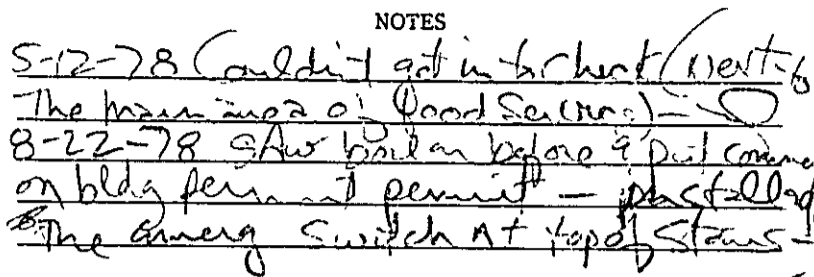 NOTES
5-12-78 Couldn't get in to check (Next to
The main area of food serving) -
8-22-78 saw boiler before & put comme
on bldg permit permit - installed
The emerg switch At top of stairs -